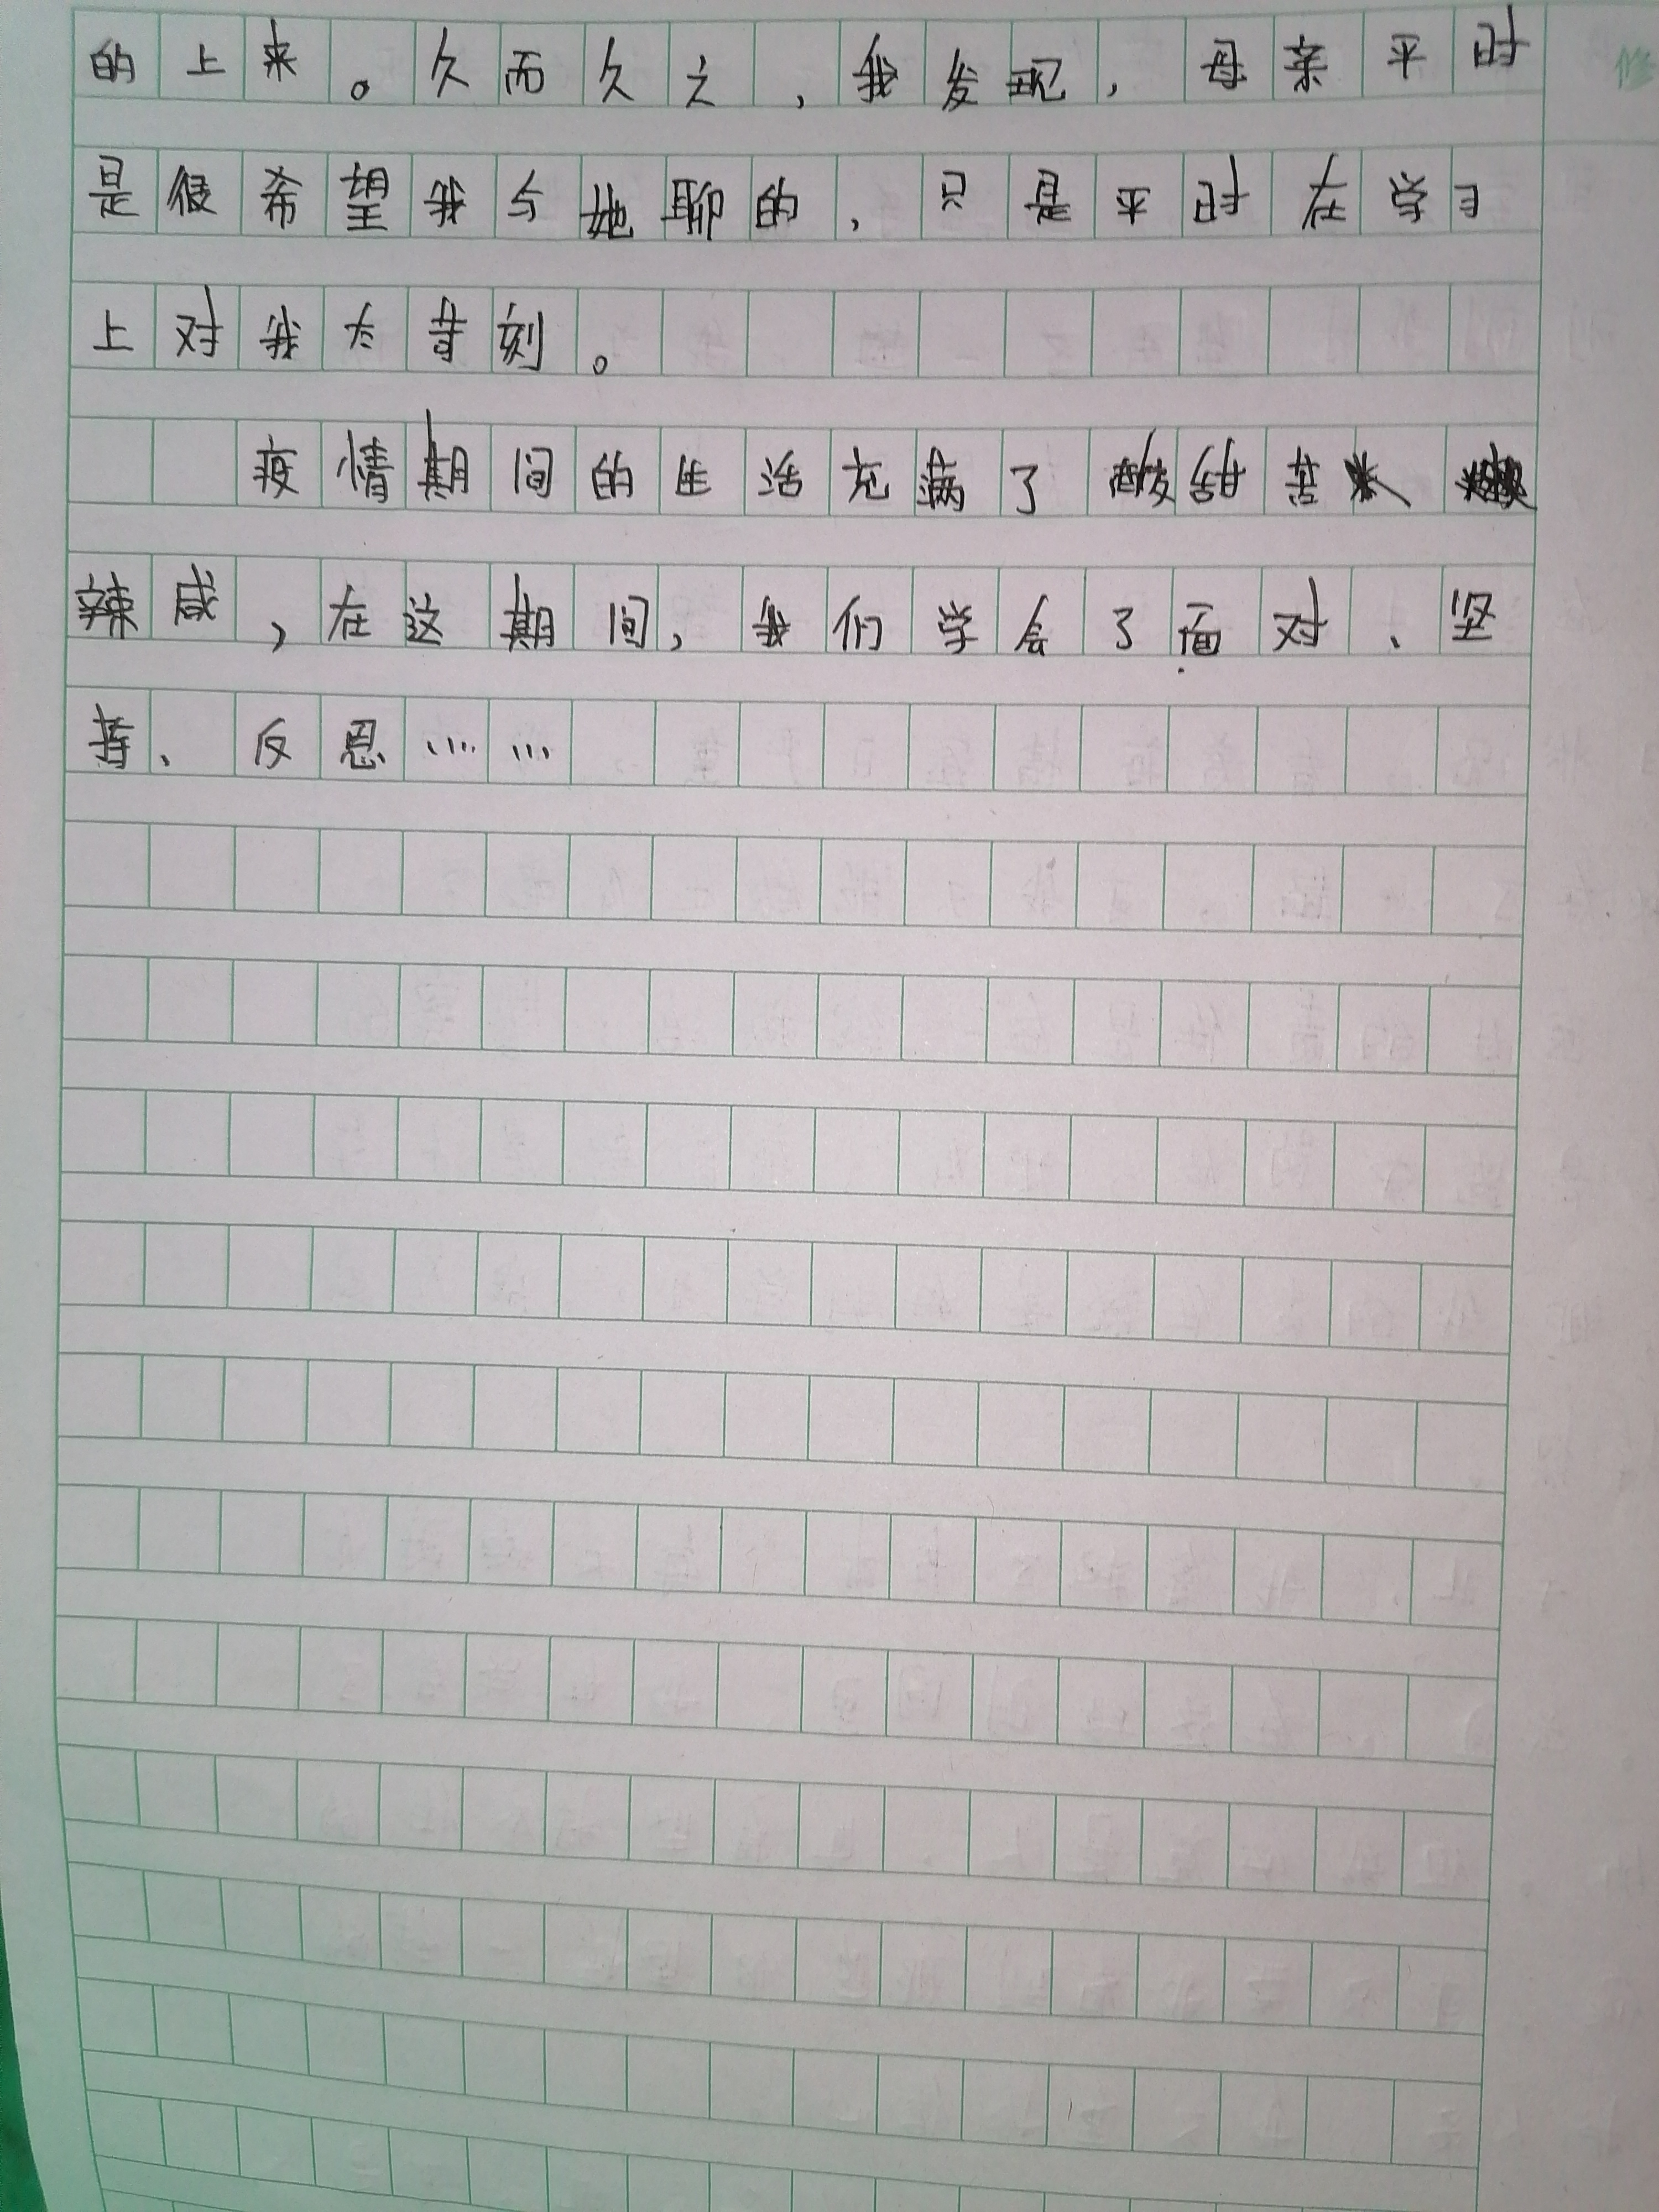 的上来。久而久之，我发现，母亲平时
是很希望我与她聊的，只是平时在学习
上对我太苛刻。
疫情期间的生活充满了酸甜苦
辣咸，在这期间，我们学会了面对、坚
持、反思……
修